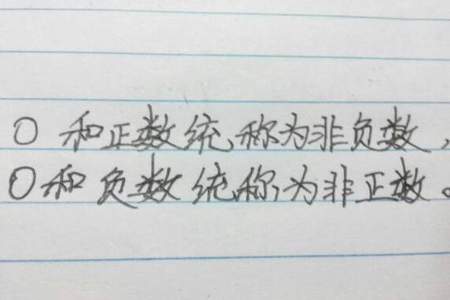 0和正数统称为非负数,
0和负数统称为非正数。